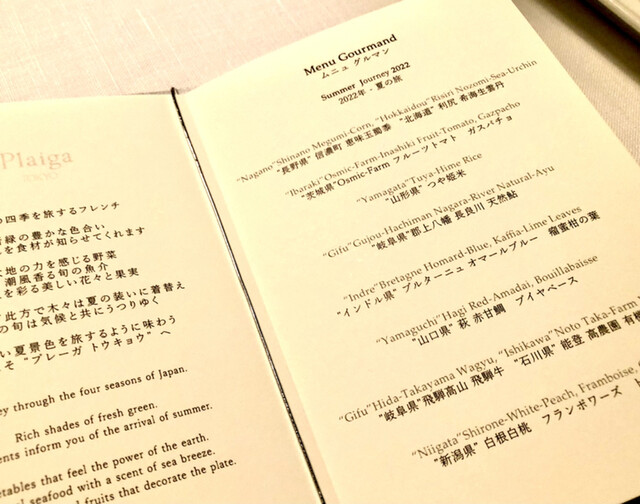 Plaiga
TOKYO
四季を旅するフレンチ
緑の豊かな色合い
を食材が知らせてくれます
地の力を感じる野菜
潮風香る旬の魚介
を彩る美しい花々と果実
此方で木々は夏の装いに着替え
の旬は気候と共にうつりゆく
い夏景色を旅するように味わう
そ "プレーガ トウキョウ" へ
ey through the four seasons of Japan.
Rich shades of fresh green.
ents inform you of the arrival of summer.
etables that feel the power of the earth.
l seafood with a scent of sea breeze.
and fruits that decorate the plate.
Menu Gourmand
ムニュ グルマン
Summer Journey 2022
2022年・夏の旅
"Nagano"Shinano Megumi-Corn, "Hokkaidou"Risiri Nozomi-Sea-Urchin
"長野県" 信濃町 恵味玉蜀黍 "北海道" 利尻 希海生雲丹
"Ibaraki"Osmic-Farm-Inashiki Fruit-Tomato, Gazpacho
"茨城県"Osmic-Farm フルーツトマト ガスパチョ
"Yamagata"Tuya-Hime Rice
"山形県" つや姫米
"Gifu"Gujou-Hachiman Nagara-River Natural-Ayu
"岐阜県"郡上八幡 長良川 天然鮎
"Indre"Bretagne Homard-Blue, Kaffia-Lime Leaves
"インドル県" ブルターニュ オマールブルー 瘤蜜柑の葉
"Yamaguchi"Hagi Red-Amadai, Bouillabaisse
"山口県" 萩 赤甘鯛 ブイヤベース
"Gifu"Hida-Takayama Wagyu, "Ishikawa"Noto Taka-Farm
"岐阜県"飛騨高山 飛騨牛 "石川県" 能登 高農園 有機
"Niigata"Shirone-White-Peach, Framboise,
"新潟県" 白根白桃 フランボワーズ